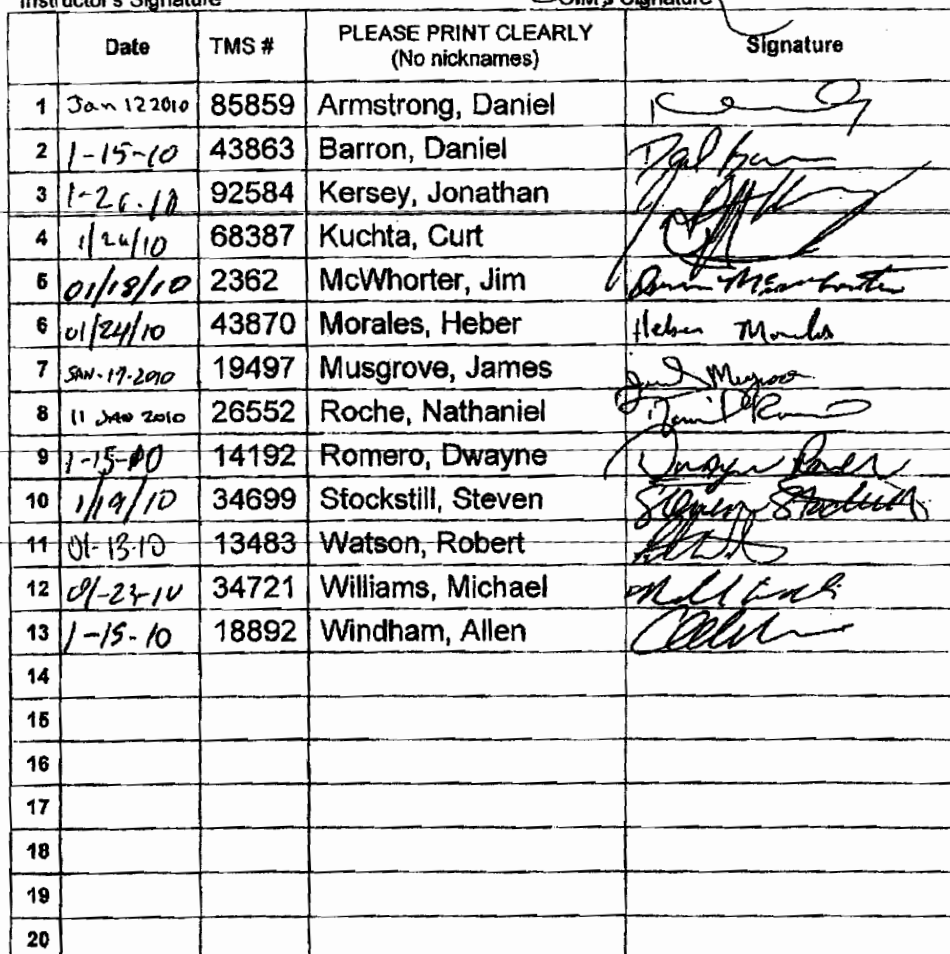 Instructor's Signature OIM's Signature
Date TMS # PLEASE PRINT CLEARLY Signature
(No nicknames)
1 Jan 12 2010 85859 Armstrong, Daniel
2 1-15-10 43863 Barron, Daniel
3 1-26-10 92584 Kersey, Jonathan
4 1/26/10 68387 Kuchta, Curt
5 01/18/10 2362 McWhorter, Jim
6 01/24/10 43870 Morales, Heber Heber Morales
7 JAN-17-2010 19497 Musgrove, James
8 11 JAN 2010 26552 Roche, Nathaniel
9 1-15-10 14192 Romero, Dwayne
10 1/19/10 34699 Stockstill, Steven Steven Stockstill
11 01-13-10 13483 Watson, Robert
12 34721 Williams, Michael
13 1-15-10 18892 Windham, Allen
14
15
16
17
18
19
20